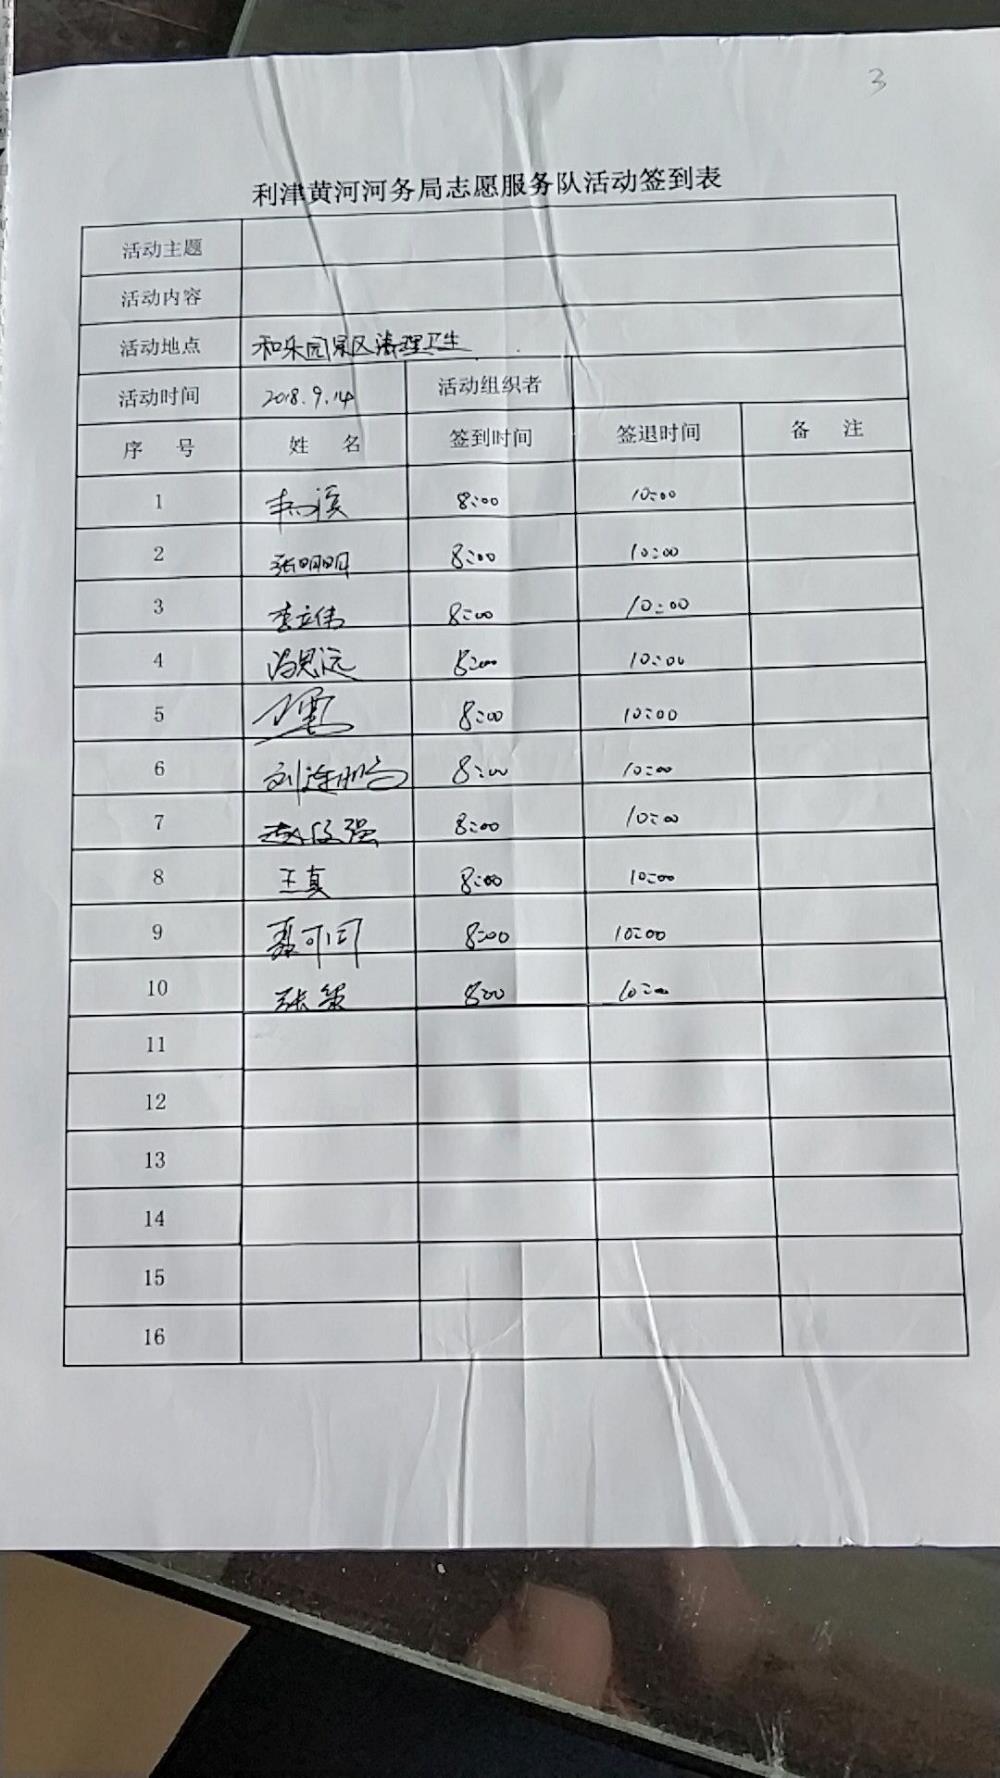 3
利津黄河河务局志愿服务队活动签到表
活动主题
活动内容
活动地点 和乐园景区清理卫生
活动时间 2018.9.14 活动组织者
序 号 姓 名 签到时间 签退时间 备 注
1 8:00 10:00
2 张明明 8:00 10:00
3 李立伟 8:00 10:00
4 冯思远 8:00 10:00
5 8:00 10:00
6 刘连鹏 8:00 10:00
7 赵保强 8:00 10:00
8 王真 8:00 10:00
9 聂可同 8:00 10:00
10 张 8:00 10:00
11
12
13
14
15
16